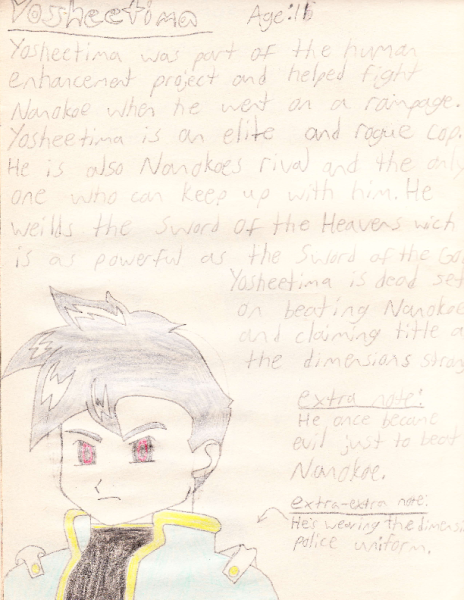 Yosheetima Age:
Yosheetima was part of the human
enhancement project and helped fight
Nanokoe when he went on a rampage.
Yosheetima is an elite and rogue cop.
He is also Nanokoes rival and the only
one who can keep up with him. He
weilds the Sword of the Heavens wich
is as powerful as the Sword of the
Yosheetima is dead set
on beating Nanokoe
and claiming title
the dimensions
extra note:
He once became
evil just to beat
Nanokoe.
extra-extra note:
He's wearing the
police uniform.